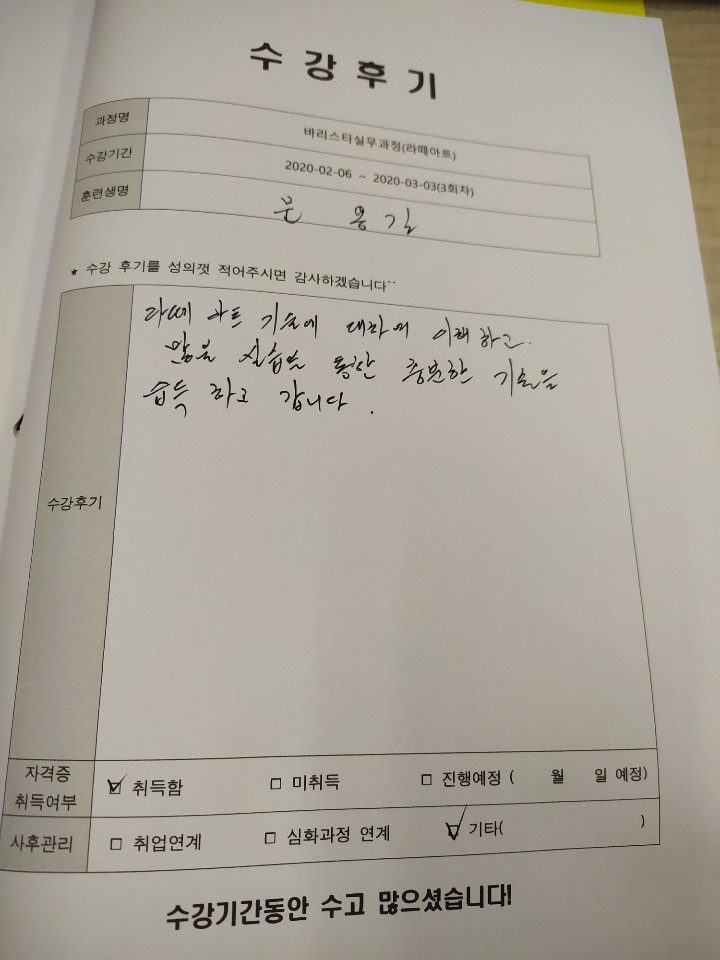 수강후기
과정명 바리스타실무과정(라떼아트)
수강기간 2020-02-06 ~ 2020-03-03(3회차)
훈련생명 문 용 길
★ 수강 후기를 성의껏 적어주시면 감사하겠습니다^^
라떼 아트 기술에 대하여 이해하고.
많은 실습을 통한 충분한 기술을
습득 하고 갑니다.
수강후기
자격증
취득여부 ☑ 취득함 □ 미취득 □ 진행예정 ( 월 일 예정)
사후관리 □ 취업연계 □ 심화과정 연계 ☑ 기타( )
수강기간동안 수고 많으셨습니다!